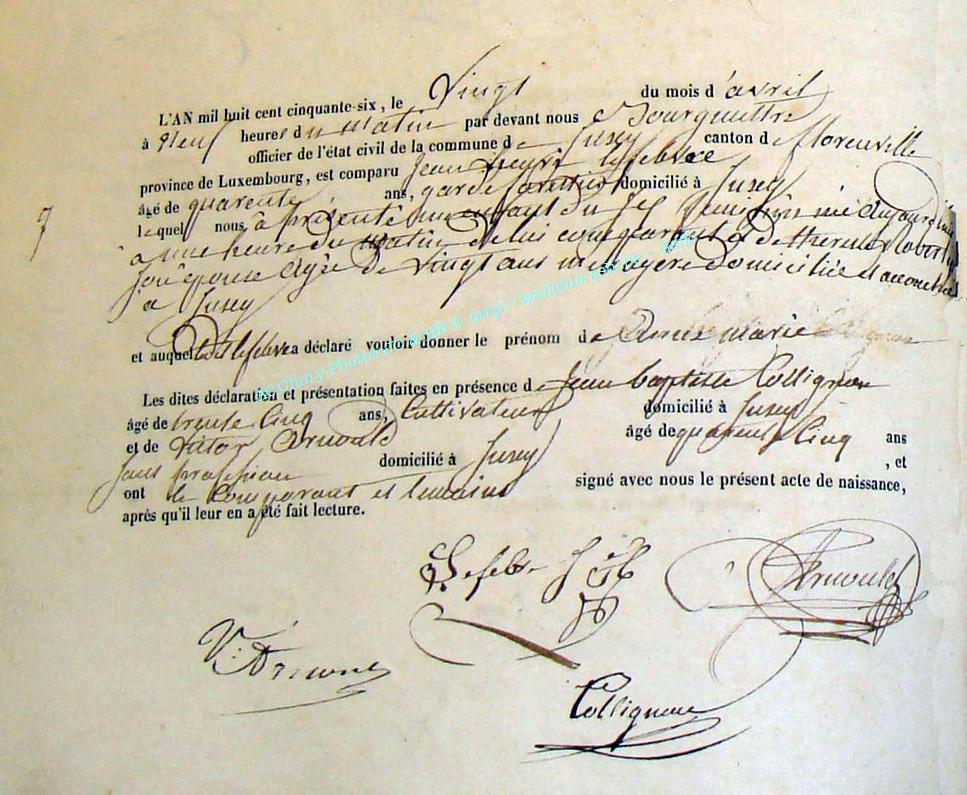 L'AN mil huit cent cinquante-six, le Vingt du mois d'avril
à Neuf heures du matin par devant nous
officier de l'état civil de la commune de Jusey canton de florenville
province de Luxembourg, est comparu Jean henri lefebvre
âgé de quarente ans, garde forestier domicilié à Jusey
lequel nous à présenté un enfant du sexe feminin né aujourd'hui
à une heure du matin de lui comparant & de therese Robert
son épouse âgée de vingt ans menagere domiciliée et accouchée
a Jusey
et auquel ledit lefebvre a déclaré vouloir donner le prénom de marie
Les dites déclaration et présentation faites en présence de Jean baptiste Collignon
âgé de trente Cinq ans, Cultivateur domicilié à Jusey
et de Victor Arnould âgé de quarente Cinq ans
sans profession domicilié à Jusey , et
ont le Comparant et temoins signé avec nous le présent acte de naissance,
après qu'il leur en a été fait lecture.
Lefebvre J H
Arnould
V. Arnould
Collignon
AC Chiny Photos http://wallonia-asbl.be